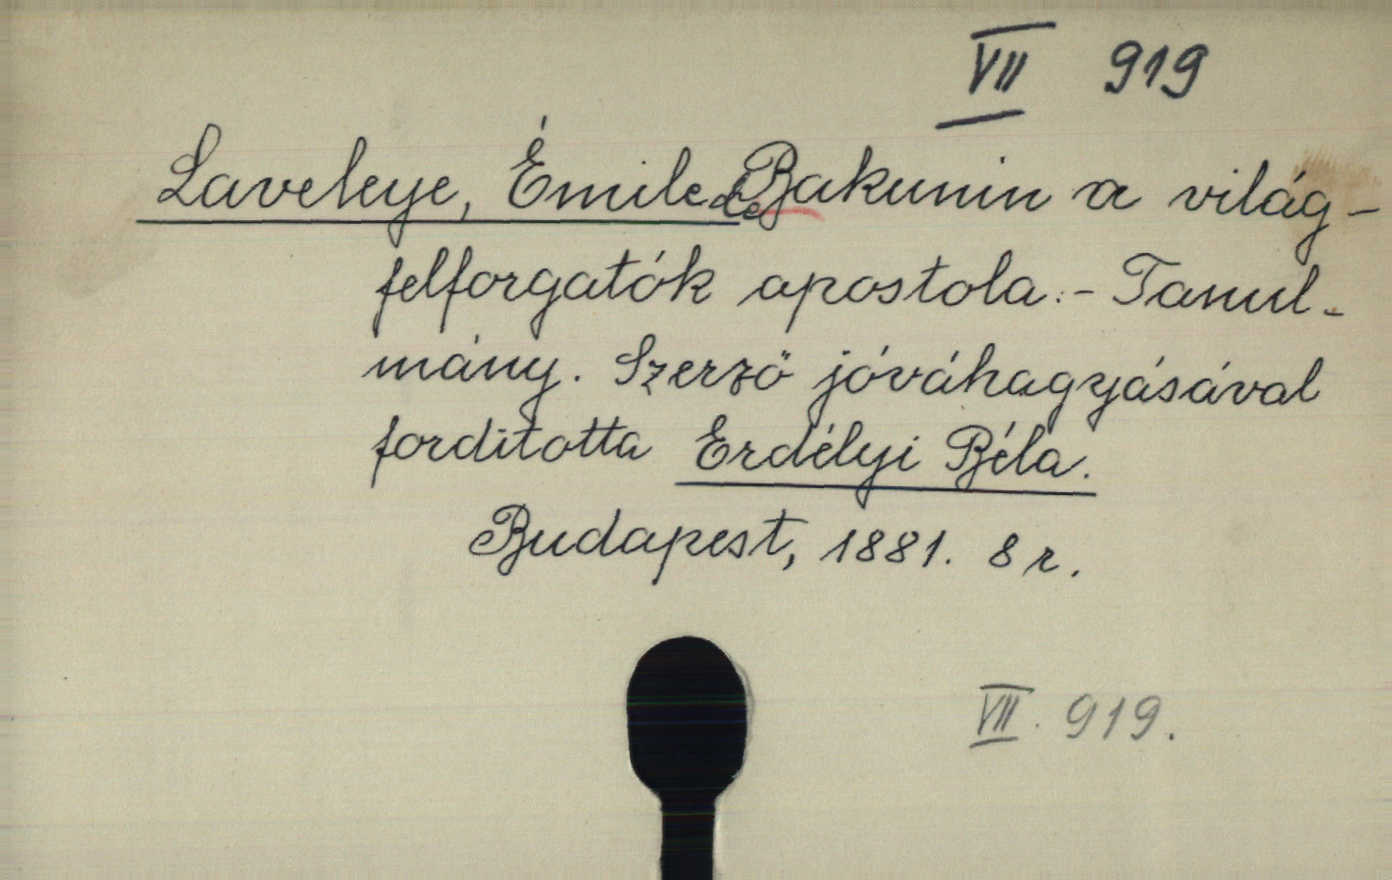 VII 919
Laveleye, Émile de Bakunin a világ-
felforgatók apostola.- Tanul-
mány. Szerző jóváhagyásával
fordította Erdélyi Béla.
Budapest, 1881. 8 r.
VII. 919.